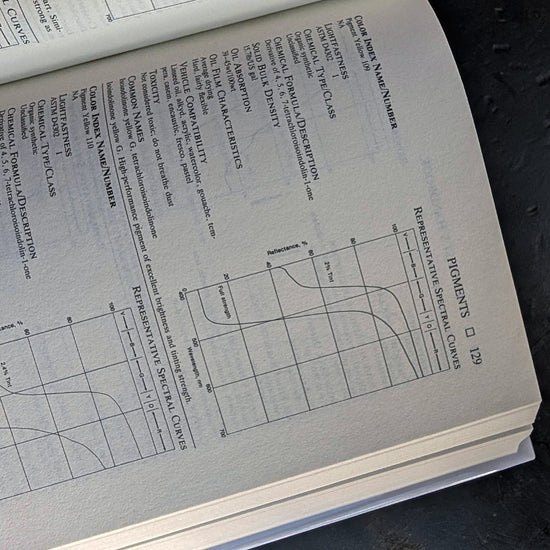 PIGMENTS □ 129
COLOR INDEX NAME/NUMBER
Pigment Yellow 109
LIGHTFASTNESS
ASTM D4302 I
CHEMICAL TYPE/CLASS
Organic synthetic
Unclassified
CHEMICAL FORMULA/DESCRIPTION
Derivative of 4, 5, 6, 7-tetrachloroisoindolin-1-one
SOLID BULK DENSITY
OIL ABSORPTION
OIL FILM CHARACTERISTICS
Average drying
Hard, fairly flexible
VEHICLE COMPATIBILITY
Linseed oil, alkyd, acrylic, watercolor, gouache, tem-
pera, casein, encaustic, fresco, pastel
TOXICITY
Not considered toxic; do not breathe dust
COMMON NAMES
Isoindolinone yellow G, tetrachloroisoindolinone
isoindolinone yellow G. High-performance pigment of excellent brightness and tinting strength.
REPRESENTATIVE SPECTRAL CURVES
V B G Y O R
100
80
60
40
20
0
Reflectance, %
2% Tint
Full strength
400 500 600 700
Wavelength, nm
COLOR INDEX NAME/NUMBER
Pigment Yellow 110
LIGHTFASTNESS
ASTM D4302 I
CHEMICAL TYPE/CLASS
Organic synthetic
Unclassified
CHEMICAL FORMULA/DESCRIPTION
Derivative of 4, 5, 6, 7-tetrachloroisoindolin-1-one
REPRESENTATIVE SPECTRAL CURVES
100
80
60
2.4% Tint